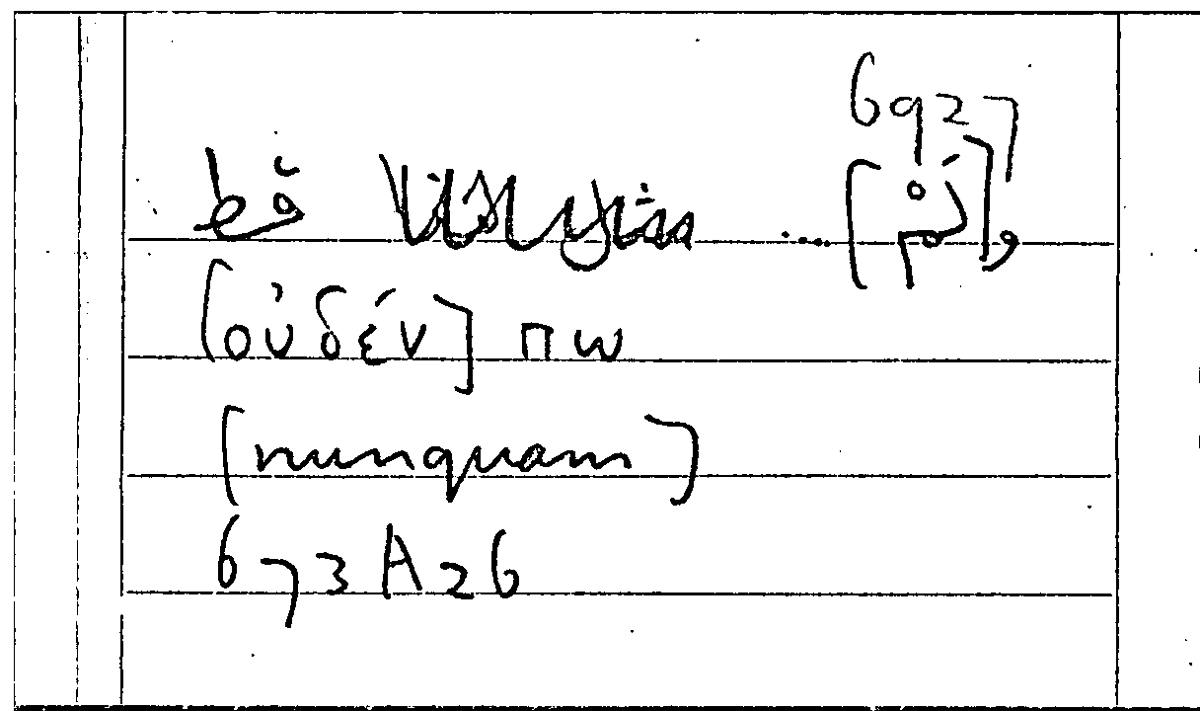 6927
و[لَمْ] .... قط
[οὐδέν] πω
[nunquam]
673A26